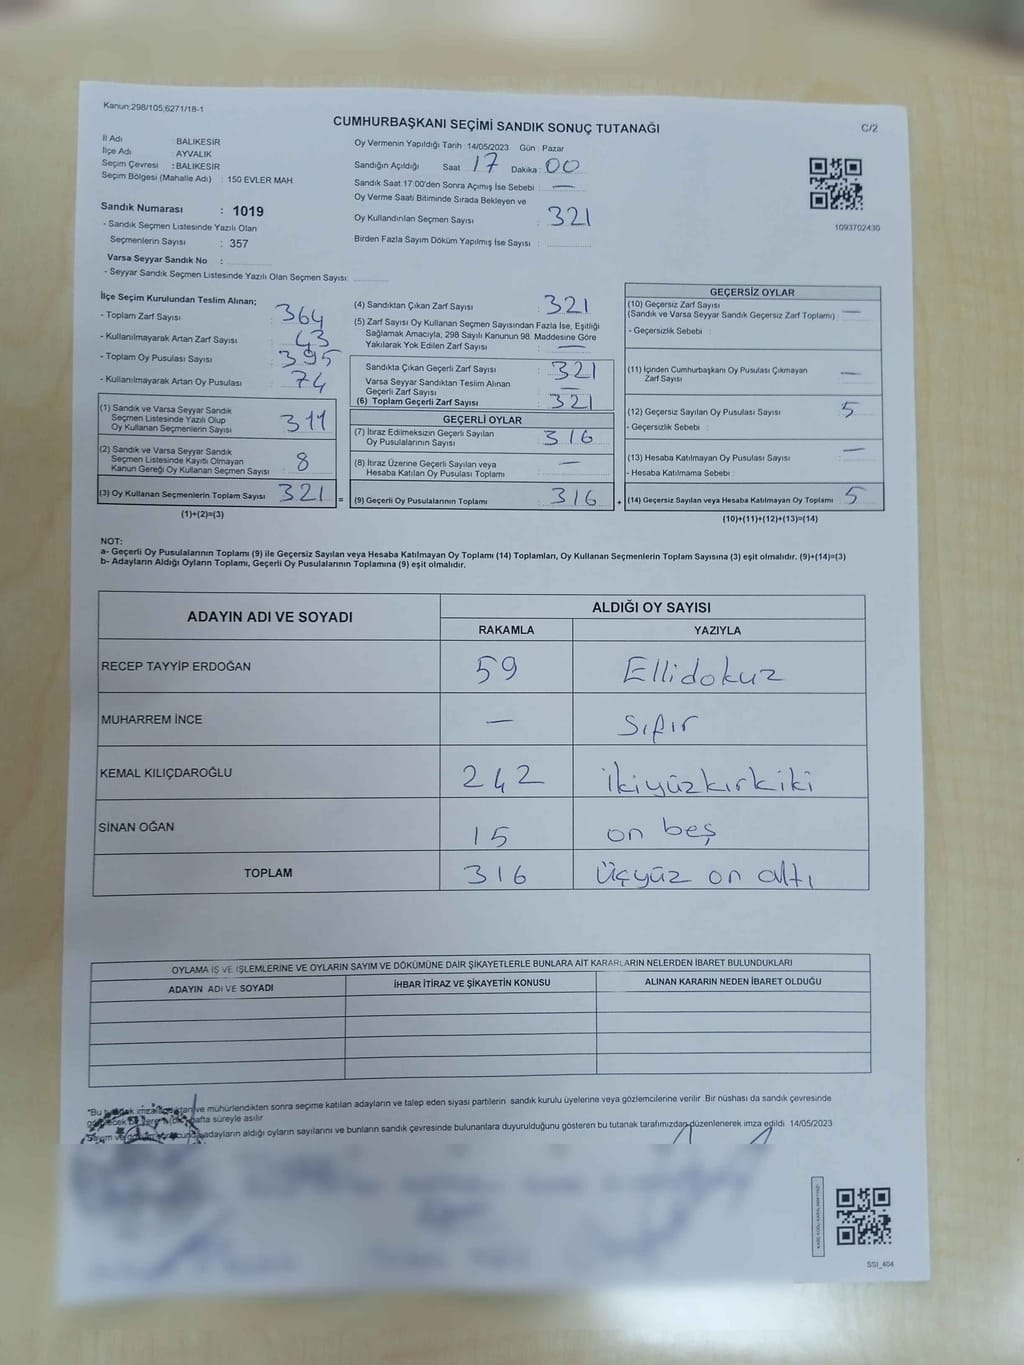 Kanun;298/105,6271/18-1
CUMHURBAŞKANI SEÇİMİ SANDIK SONUÇ TUTANAĞI
C/2
İl Adı BALIKESİR
İlçe Adı AYVALIK
Seçim Çevresi : BALIKESİR
Seçim Bölgesi (Mahalle Adı) : 150 EVLER MAH.
Sandık Numarası : 1019
- Sandık Seçmen Listesinde Yazılı Olan
Seçmenlerin Sayısı : 357
Varsa Seyyar Sandık No :
- Seyyar Sandık Seçmen Listesinde Yazılı Olan Seçmen Sayısı:
Oy Vermenin Yapıldığı Tarih :14/05/2023 Gün : Pazar
Sandığın Açıldığı Saat : 17 Dakika : 00
Sandık Saat 17:00'den Sonra Açımış İse Sebebi : —
Oy Verme Saati Bitiminde Sırada Bekleyen ve
Oy Kullandırılan Seçmen Sayısı : 321
Birden Fazla Sayım Döküm Yapılmış İse Sayısı :
1093702430
İlçe Seçim Kurulundan Teslim Alınan;
- Toplam Zarf Sayısı : 364
- Kullanılmayarak Artan Zarf Sayısı : 43
- Toplam Oy Pusulası Sayısı : 395
- Kullanılmayarak Artan Oy Pusulası : 74
(1) Sandık ve Varsa Seyyar Sandık
Seçmen Listesinde Yazılı Olup
Oy Kullanan Seçmenlerin Sayısı : 311
(2) Sandık ve Varsa Seyyar Sandık
Seçmen Listesinde Kayıtlı Olmayan
Kanun Gereği Oy Kullanan Seçmen Sayısı : 8
(3) Oy Kullanan Seçmenlerin Toplam Sayısı : 321 =
(1)+(2)=(3)
(4) Sandıktan Çıkan Zarf Sayısı : 321
(5) Zarf Sayısı Oy Kullanan Seçmen Sayısından Fazla İse, Eşitliği
Sağlamak Amacıyla, 298 Sayılı Kanunun 98. Maddesine Göre
Yakılarak Yok Edilen Zarf Sayısı : —
Sandıkta Çıkan Geçerli Zarf Sayısı : 321
Varsa Seyyar Sandıktan Teslim Alınan
Geçerli Zarf Sayısı : —
(6) Toplam Geçerli Zarf Sayısı : 321
GEÇERLİ OYLAR
(7) İtiraz Edilmeksizin Geçerli Sayılan
Oy Pusulalarının Sayısı : 316
(8) İtiraz Üzerine Geçerli Sayılan veya
Hesaba Katılan Oy Pusulası Toplamı : —
(9) Geçerli Oy Pusulalarının Toplamı : 316 +
GEÇERSİZ OYLAR
(10) Geçersiz Zarf Sayısı
(Sandık ve Varsa Seyyar Sandık Geçersiz Zarf Toplamı) : —
- Geçersizlik Sebebi :
(11) İçinden Cumhurbaşkanı Oy Pusulası Çıkmayan
Zarf Sayısı : —
(12) Geçersiz Sayılan Oy Pusulası Sayısı : 5
- Geçersizlik Sebebi :
(13) Hesaba Katılmayan Oy Pusulası Sayısı : —
- Hesaba Katılmama Sebebi :
(14) Geçersiz Sayılan veya Hesaba Katılmayan Oy Toplamı : 5
(10)+(11)+(12)+(13)=(14)
NOT:
a- Geçerli Oy Pusulalarının Toplamı (9) ile Geçersiz Sayılan veya Hesaba Katılmayan Oy Toplamı (14) Toplamları, Oy Kullanan Seçmenlerin Toplam Sayısına (3) eşit olmalıdır. (9)+(14)=(3)
b- Adayların Aldığı Oyların Toplamı, Geçerli Oy Pusulalarının Toplamına (9) eşit olmalıdır.
ADAYIN ADI VE SOYADI
ALDIĞI OY SAYISI
RAKAMLA YAZIYLA
RECEP TAYYİP ERDOĞAN 59 Ellidokuz
MUHARREM İNCE — Sıfır
KEMAL KILIÇDAROĞLU 242 İkiyüzkırkiki
SİNAN OĞAN 15 on beş
TOPLAM 316 Üçyüz on altı
OYLAMA İŞ VE İŞLEMLERİNE VE OYLARIN SAYIM VE DÖKÜMÜNE DAİR ŞİKAYETLERLE BUNLARA AİT KARARLARIN NELERDEN İBARET BULUNDUKLARI
ADAYIN ADI VE SOYADI İHBAR İTİRAZ VE ŞİKAYETİN KONUSU ALINAN KARARIN NEDEN İBARET OLDUĞU
"Bu tutanak imzalandıktan ve mühürlendikten sonra seçime katılan adayların ve talep eden siyasi partilerin sandık kurulu üyelerine veya gözlemcilerine verilir .Bir nüshası da sandık çevresinde
bir hafta süreyle asılır
Sayım ve adayların aldığı oyların sayılarını ve bunların sandık çevresinde bulunanlara duyurulduğunu gösteren bu tutanak tarafımızdan düzenlenerek imza edildi. 14/05/2023
SSI_404